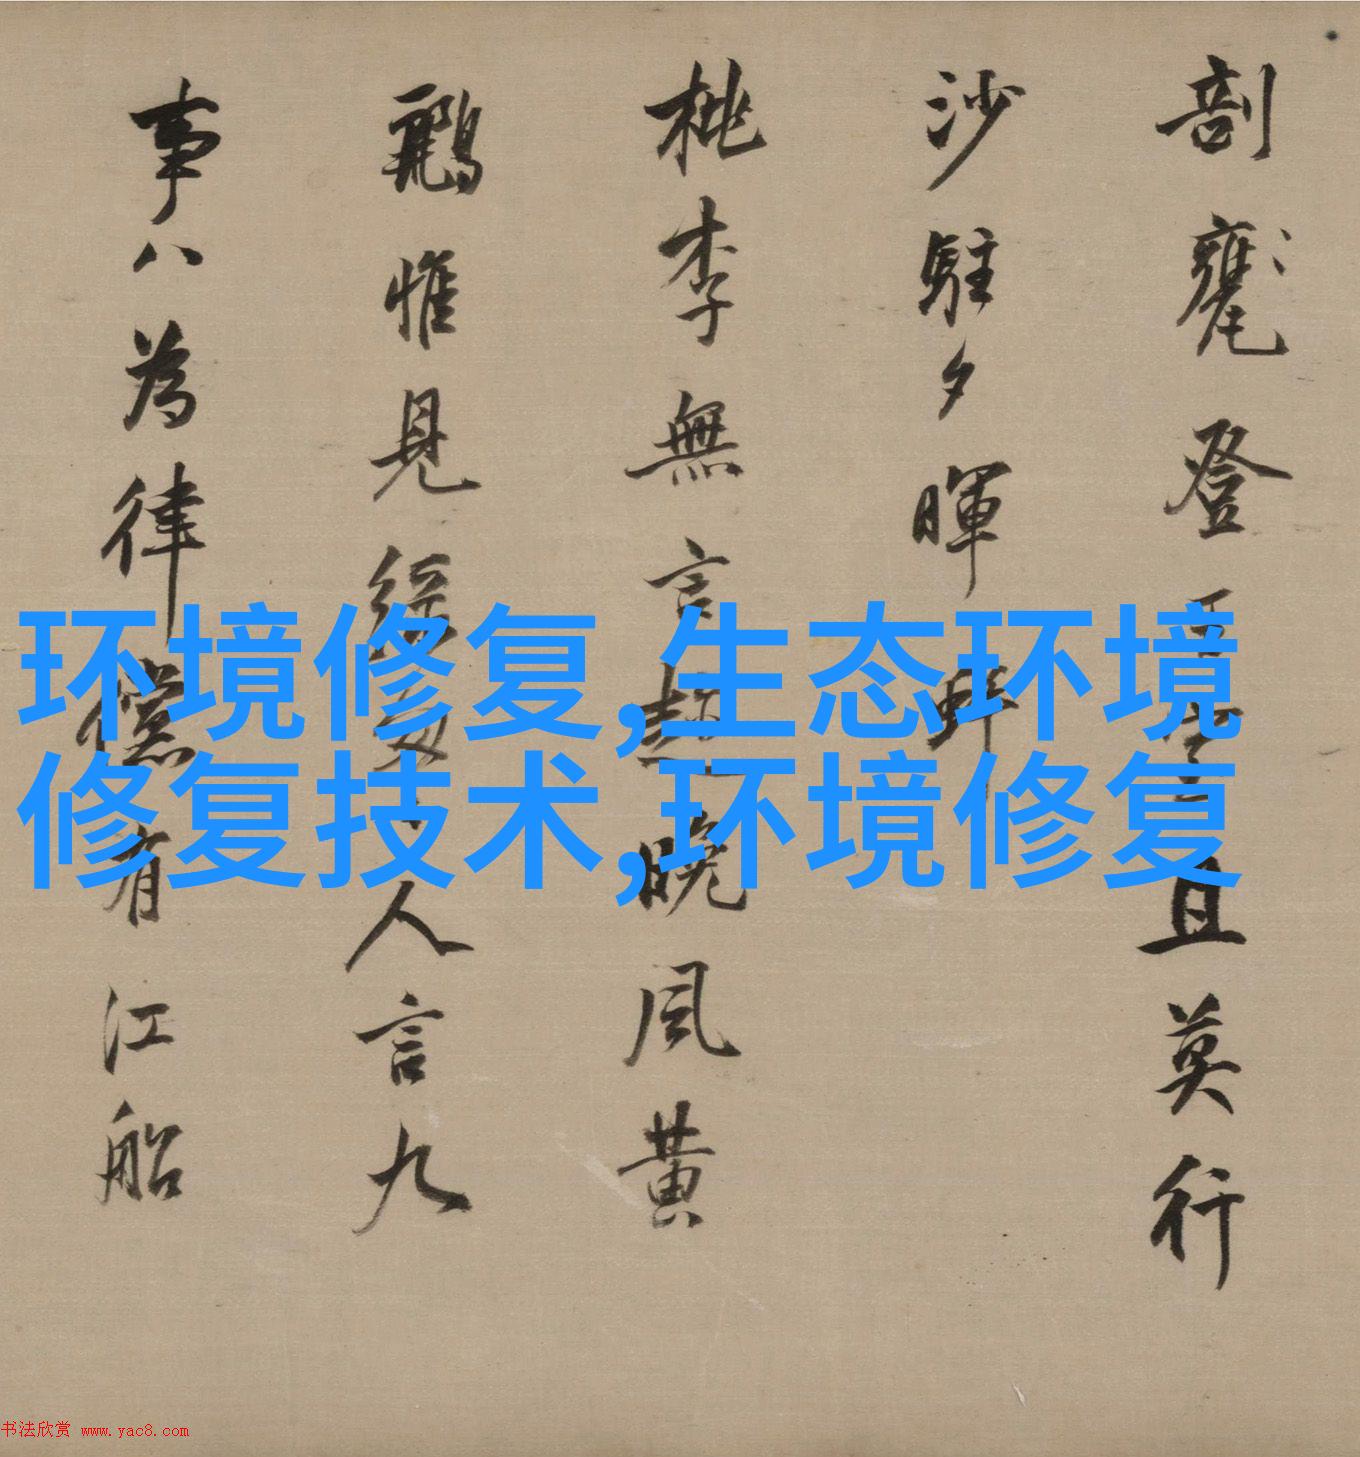 剖甕登且莫行
沙駐夕暉
桃李無言晚風黃
鸝惟見緑人言九
事八為律儻有江船
环境修复,生态环境
修复技术,环境修复
书法欣赏 www.yac8.com